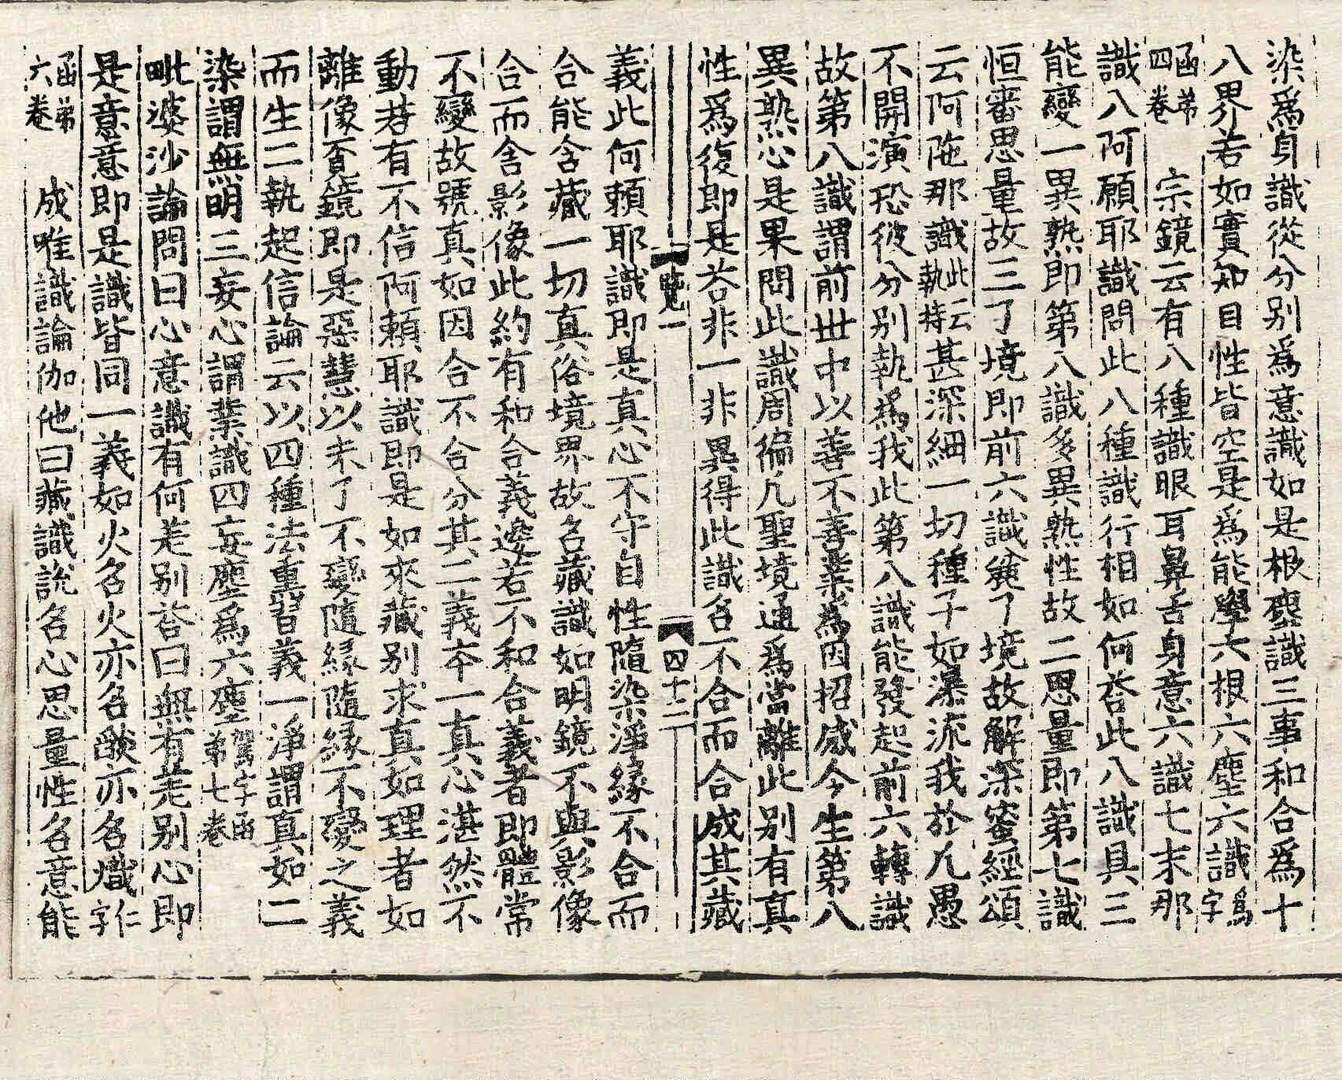 染爲身識從分別爲意識如是根塵識三事和合爲十
八界若如實知自性皆空是爲能學六根六塵六識爲字
函弟四卷　宗鏡云有八種識眼耳鼻舌身意六識七末那
識八阿頼耶識問此八種識行相如何荅此八識具三
能變一異熟即第八識多異熟性故二思量即第七識
恒審思量故三了境即前六識麁了境故解深蜜經頌
云阿陁那識此云執持甚深細一切種子如瀑流我於凡愚
不開演恐彼分別執爲我此第八識能發起前六轉識
故第八識謂前世中以善不善業爲因招感今生第八
異熟心是果問此識周徧凡聖境通爲當離此別有真
性爲復即是荅非一非異得此識名不合而合成其藏
覽一　四十二
義此何頼耶識即是真心不守自性隨染淨緣不合而
合能含藏一切真俗境界故名藏識如明鏡不與影像
合而含影像此約有和合義邊若不和合義者即體常
不變故號真如因合不合分其二義夲一真心湛然不
動若有不信阿頼耶識即是如來藏別求真如理者如
離像覔鏡即是惡慧以未了不變隨緣隨緣不變之義
而生二執起信論云以四種法熏習義一淨謂真如二
染謂無明三妄心謂業識四妄塵爲六塵駕字函弟七卷
毗婆沙論問曰心意識有何差別荅曰無有差別心即
是意意即是識皆同一義如火名火亦名燄亦名熾仁字
函弟六卷　成唯識論伽他曰藏識說名心思量性名意能